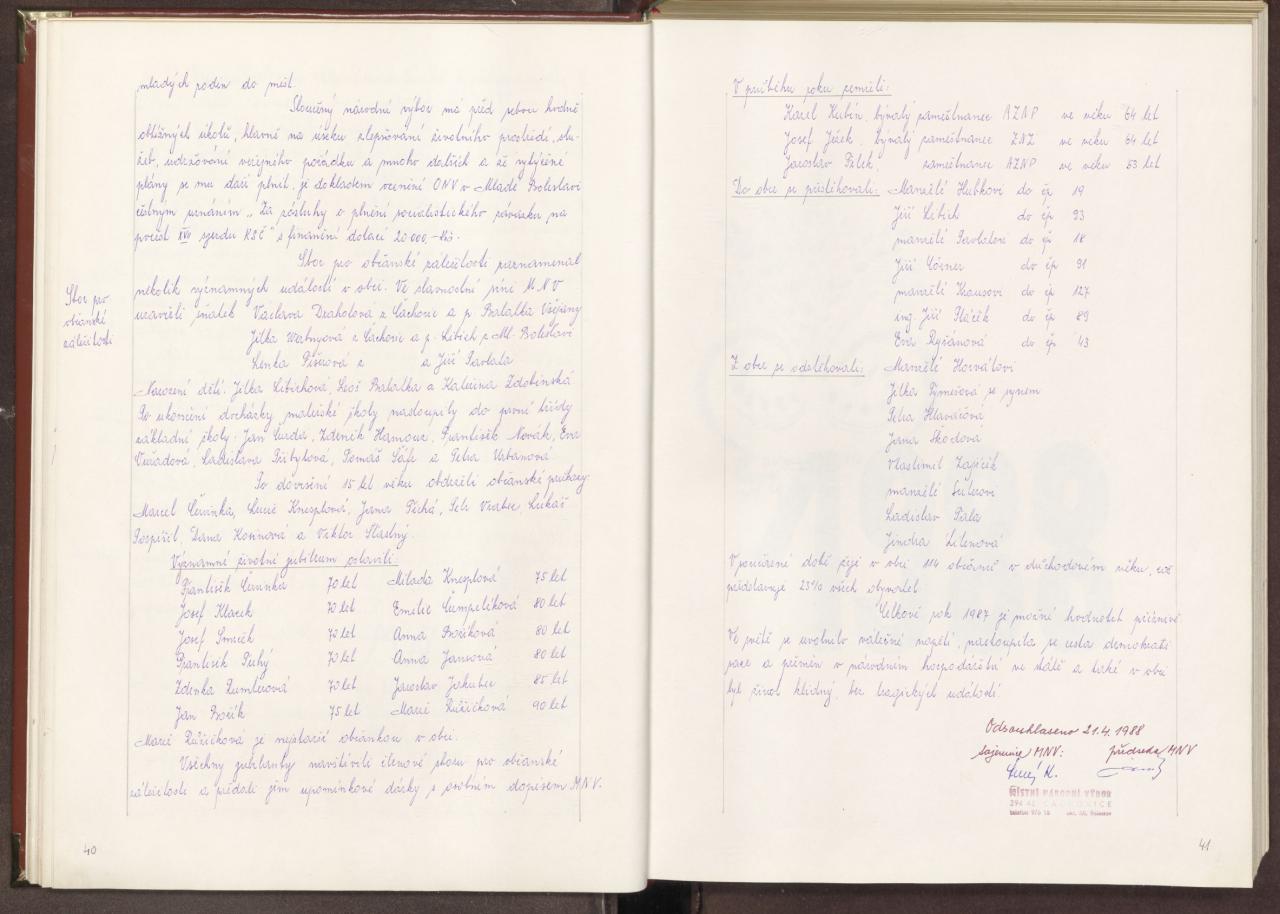 mladých rodin do měst.
Sloučený národní výbor má před sebou hodně
obtížných úkolů, hlavně na úseku zlepšování životního prostředí, slu-
žeb, udržování veřejného pořádku a mnoho dalších a že vytýčené
plány se mu daří plnit, je dokladem ocenění ONV v Mladé Boleslavi
čestným uznáním „Za zásluhy o plnění socialistického závazku na
počest XVII sjezdu KSČ" s finanční dotací 20 000,- Kčs.
Sbor pro občanské záležitosti zaznamenal
Sbor pro
občanské
záležitosti
několik významných událostí v obci. Ve slavnostní síni MNV
uzavřeli sňatek Václava Draholová z Čachovic a p. Batalka Všejany
Jitka z Čachovic a p. Libich z Ml. Boleslavi
Lenka Fišerová z a Jiří Pavlata
Narození dětí: Jitka Libichová, Leoš Batalka a Kateřina Zdobinská
Po ukončení docházky mateřské školy nastoupily do první třídy
základní školy: Jan Čurda, Zdeněk Hamouz, František Novák, Eva
Ladislava Přibylová, Tomáš Šafr a Petra Urbanová
Po dovršení 15 let věku obdrželi občanské průkazy:
Marcel Červinka, Lucie Knesplová, Jana Tichá, Petr Vrabec, Lukáš
Pospíšil, Dana Kosinová a Viktor Šťastný.
Významní životní jubileum oslavili:
František Červinka 70 let Milada Knesplová 75 let
Josef Klacek 70 let Emilie Čumpelíková 80 let
Josef Smrček 70 let Anna Bočíková 80 let
František Suchý 70 let Anna Jansová 80 let
Zdenka Rumlerová 70 let Jaroslav Jakubec 85 let
Jan Bočík 75 let Marie Růžičková 90 let
Marie Růžičková je nejstarší občankou v obci.
Všechny jubilanty navštívili členové sboru pro občanské
záležitosti a předali jim upomínkové dárky s osobním dopisem MNV.
40
V průběhu roku zemřeli:
Karel Kubín, bývalý zaměstnanec AZNP ve věku 64 let
Josef Ječek, bývalý zaměstnanec ZNZ ve věku 64 let
Jaroslav Bílek, zaměstnanec AZNP ve věku 53 let
Do obce se přistěhovali: Manželé Hubkovi do čp 19
Jiří Libich do čp 93
manželé Pavlatovi do čp 18
Jiří Görner do čp 91
manželé Krausovi do čp 127
ing. Jiří Ptáček do čp 89
Eva Ryšánová do čp 43
Z obce se odstěhovali: Manželé Horvátovi
Jitka Tymešová se synem
Petra Hlaváčová
Jana Škodová
Vlastimil Zajíček
manželé Šulcovi
Ladislav Fiala
Jindra Litenová
V současné době žije v obci 114 občanů v důchodovém věku, což
představuje 23% všech obyvatel
Celkově rok 1987 je možné hodnotit příznivě.
Ve světě se uvolnilo válečné napětí, nastoupila se cesta demokrati-
zace a přeměn v národním hospodářství ve státě a také v obci
byl život klidný, bez tragických událostí.
Odsouhlaseno 21.4. 1988
tajemnice MNV: předseda MNV
MÍSTNÍ NÁRODNÍ VÝBOR
294 42 ČACHOVICE
41